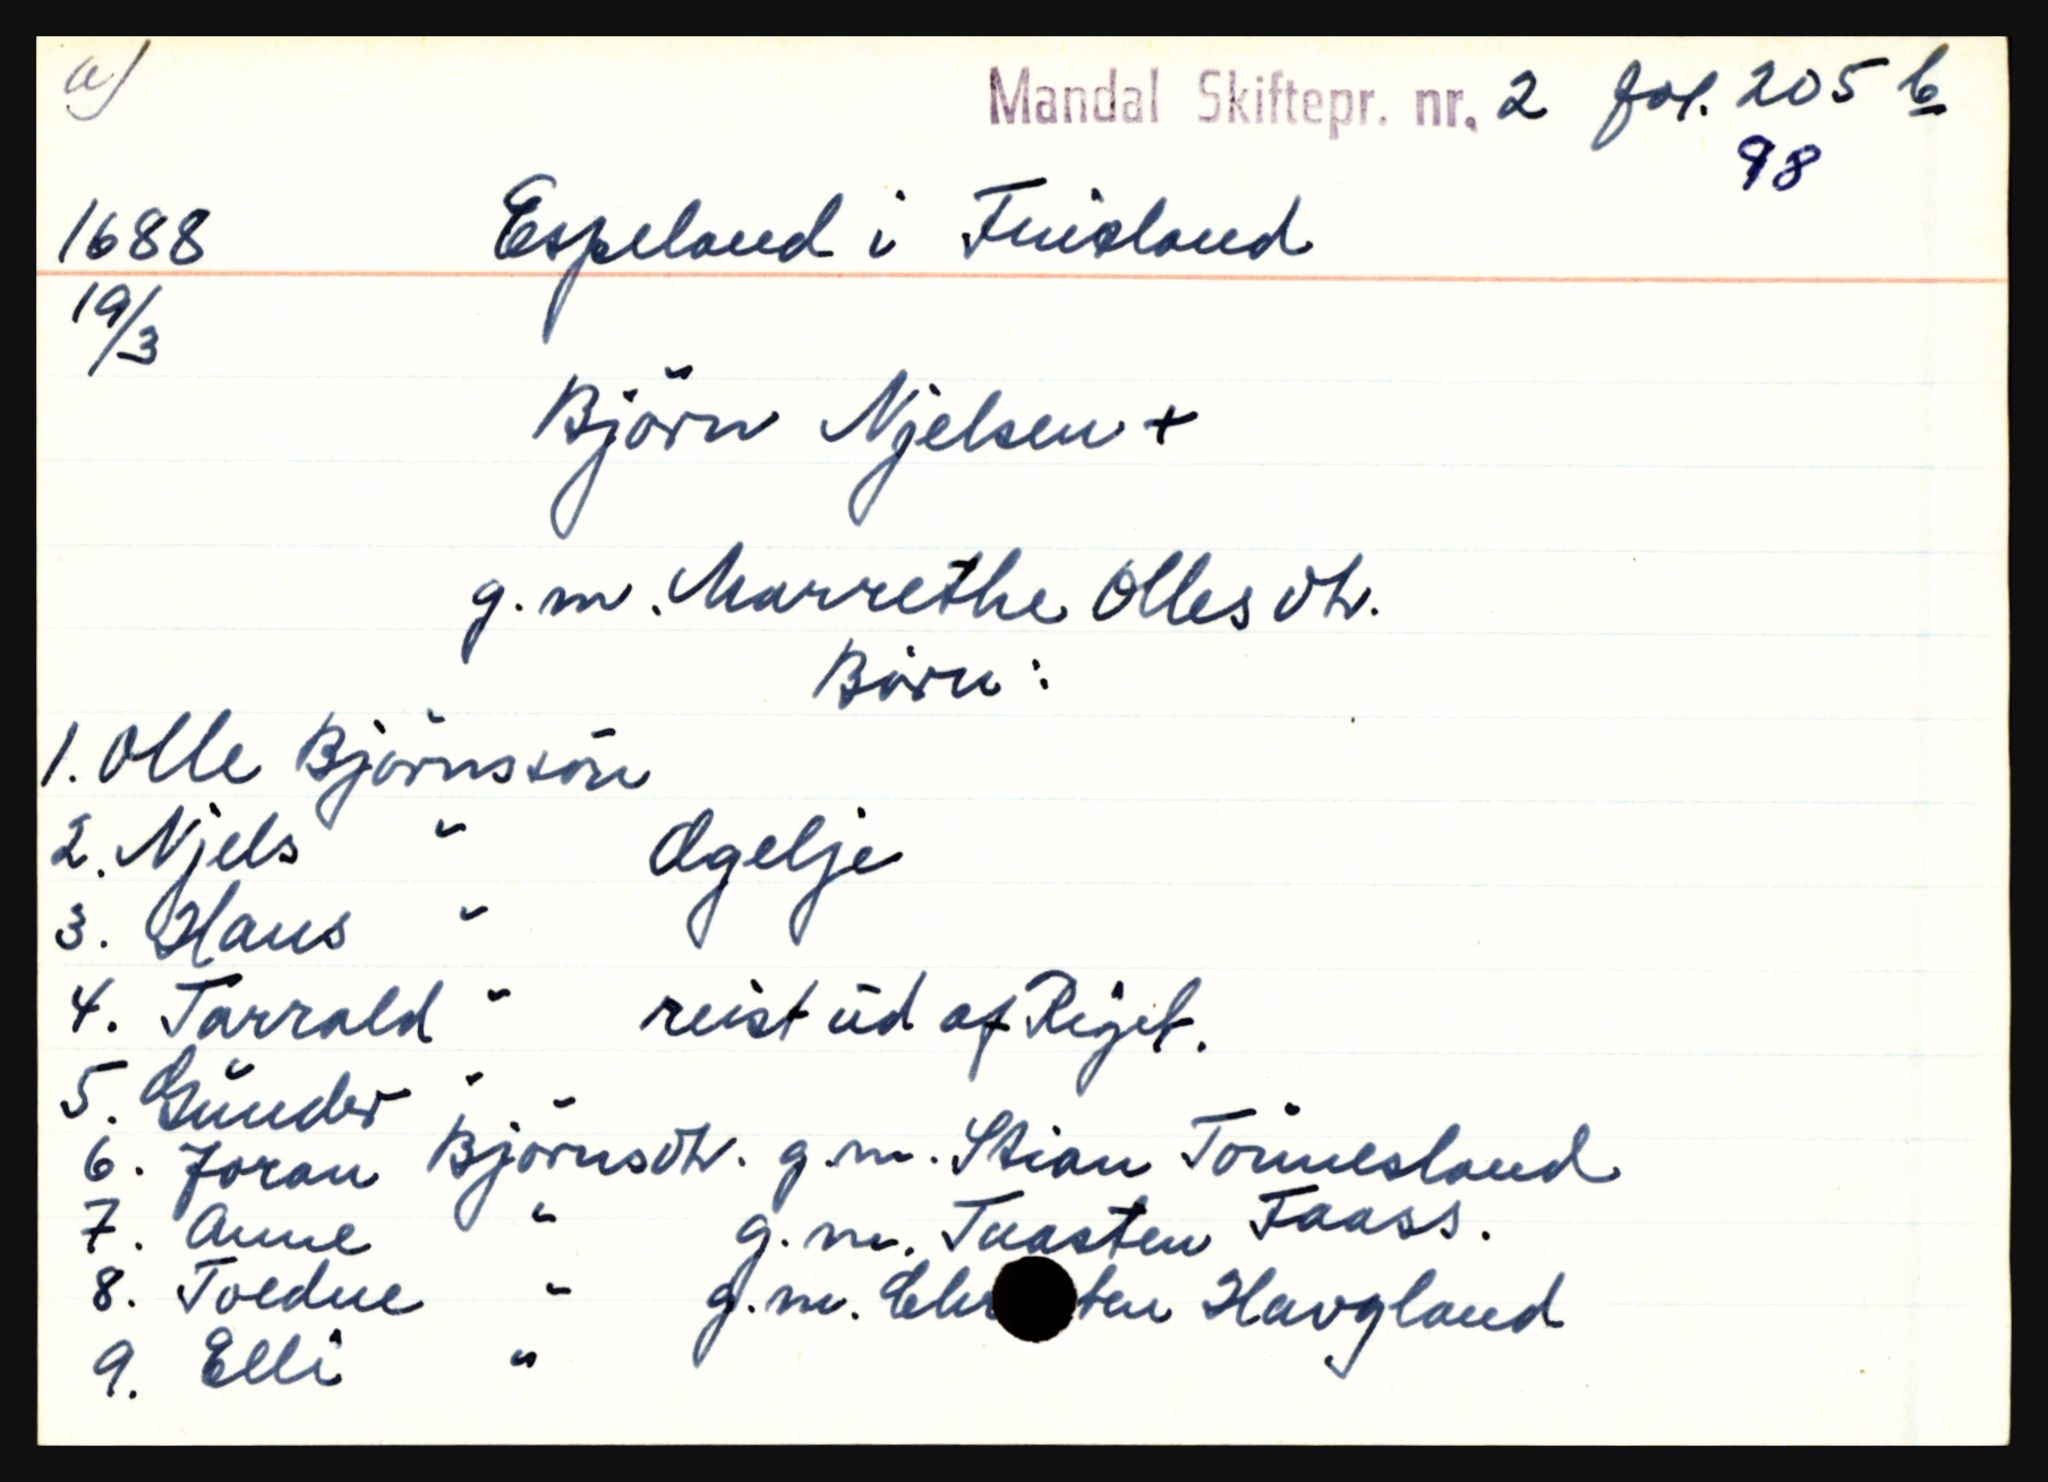 a)
Mandal Skiftepr. nr. 2 fol. 205 b
98
1688 Espeland i Finsland
19/3
Björn Njelsen +
g.m. Marrethe Olles dtr.
Börn:
1. Olle Björnssön
2. Njels " Øgelje
3. Hans "
4. Tarrald " reist ud af Riget.
5. Gunder "
6. Joran Björnsdtr. g.m. Stian Tönnesland
7. Anne " g.m. Tnasten Faass.
8. Toedne " g.m. Havgland
9. Elli "